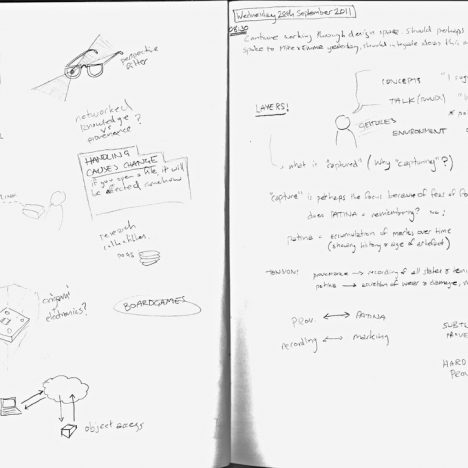 perspective
filter
networked
knowledge
vs
provenance ?
HANDLING
CAUSES CHANGE
if you open a file, it will
be affected somehow
research
collection
origami
electronics?
BOARDGAMES
object access
Wednesday 28th September 2011
08:30
Continue working through design space. Should perhaps
spoke to Mike yesterday, should integrate ideas this
CONCEPTS
TALK
LAYERS!
GESTURES
ENVIRONMENT
what is "captured" (Why "capturing"?)
"capture" is perhaps the focus because of fear of
does PATINA = remembering? no:
patina = accumulation of marks over time
(showing history & age of artefact)
TENSION: provenance → recording of all states &
patina → accretion of wear & damage,
PROV. ↔ PATINA
recording ↔ marking
SUBTL
PROVE
HARD
PROV